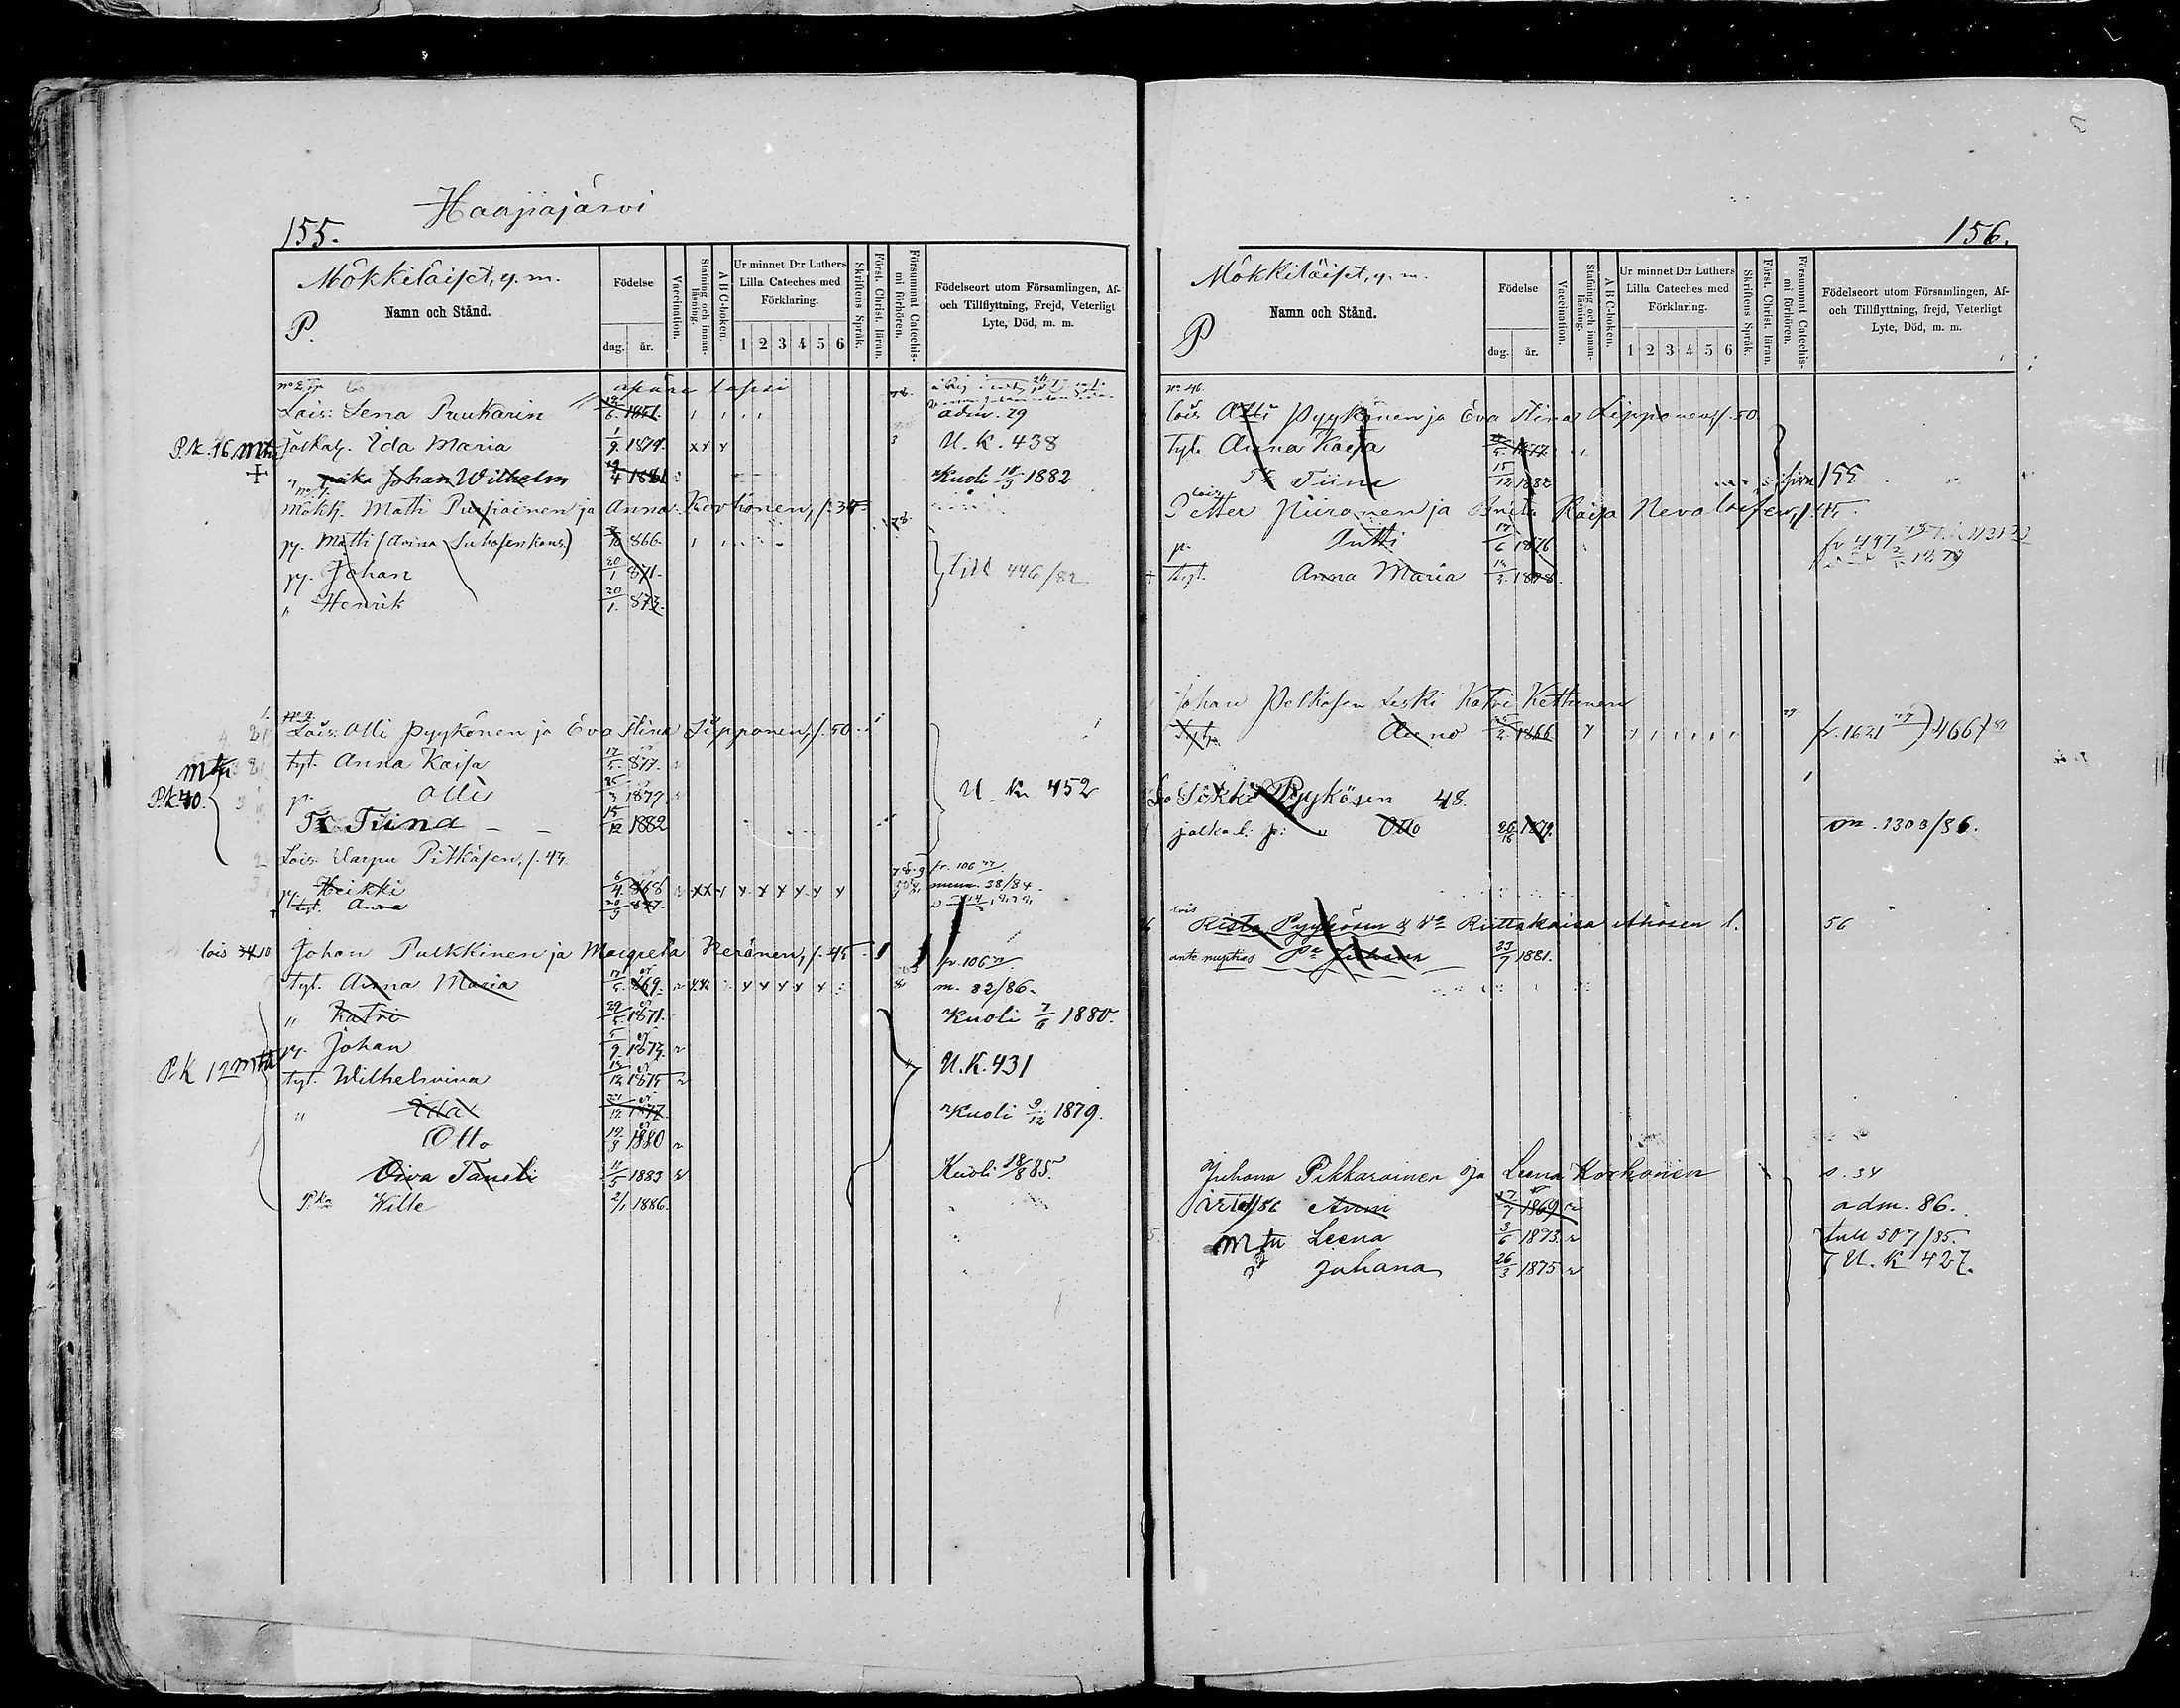 Haapajärvi
155.
Mökkiläiset, y. m.
P.
Namn och Stånd.
Födelse
dag. år.
Vaccination.
Stafning och innanläsning.
A B C-boken.
Ur minnet D:r Luthers Lilla Cateches med Förklaring.
1 2 3 4 5 6
Skriftens Språk.
Först. Christ. läran.
Försummat Catechismi förhören.
Födelseort utom Församlingen, Af- och Tillflyttning, Frejd, Veterligt Lyte, Död, m. m.
apuri lapsi
Lois: Lena Puukarin 1851. adm. 29
P.k. 16 mtu Jalkal. Ida Maria 1/9 1879. x x x 3 U. K. 438
+ " poika Johan Wilhelm 4 1881 Kuoli 1882
Mökk. Matti Pursiainen ja Anna Korhonen, s. 34
py. Matti (Anna Juhosen kans) 10 866.
py. Johan 20/1 871. 446/82
" Henrik 20/1. 873.
No 9.
Lois: Olli Pyykönen ja Eva Stina Lipponen, s. 50.
mtu tyt. Anna Kaisa 17/5. 877.
P.k 40. p. Olli 3 1879. U. K. 452
T. Tiina – – 15/12 1882
Lois: Varpu Pitkäsen, s. 43.
py. Heikki 6/4 868 xx x x x x x x x fr. 106 38/84
tyt. Anna 20/9 877.
lois 10 Johan Pulkkinen ja Margreta Keränen, s. 45. fr. 106
tyt. Anna Maria 17/5. 869. x x x x x m. 82/86.
" Katri 29/5 1871. Kuoli 7/6 1880.
py. Johan 5/9 1873.
P.k 12 mtu tyt. Wilhelmina 12 1875 U.K. 431
" Ida 12 1877. Kuoli 9/12 1879.
Otto 19/8 1880
Oiva Taneli 11/5 1883 Kuoli 18/8 85.
P:ka Wille 2/1 1886.
156.
Mökkiläiset, y. m.
P
Namn och Stånd.
Födelse
dag. år.
Vaccination.
Stafning och innanläsning.
A B C-boken.
Ur minnet D:r Luthers Lilla Cateches med Förklaring.
1 2 3 4 5 6
Skriftens Språk.
Först. Christ. läran.
Försummat Catechismi förhören.
Födelseort utom Församlingen, Af- och Tillflyttning, frejd, Veterligt Lyte, Död, m. m.
No 46.
lois Olli Pyykönen ja Eva Stina Lipponen, s. 50
tyt. Anna Kaisa 5. 1877.
T. Tiina 15/12 1882 sivu 155
lois Petter Niironen ja Brita Kaisa Nevalaisen, s. 45.
p. Antti 17/6 1876 fr 497
tyt. Anna Maria 1878.
Johan Pelkosen Leski Katri Kettunen
Tyt. Anno 2. 1866. fr. 1621 466
Lo Sikki Pyykösen 48.
jalkal: p: " Otto 26 1879. m. 1303/86.
lois Risto Pyykösen & Vo Riittakaisa Ahosen l. 56
ante nuptias Po Juhana 23/7 1881.
Juhana Pikkarainen ja Leena Korhonen s. 34
Anni 17/7 1869 adm. 86.
mtu Leena 3/6 1873. tull 507/85.
Juhana 26/3 1875 U. K 427.